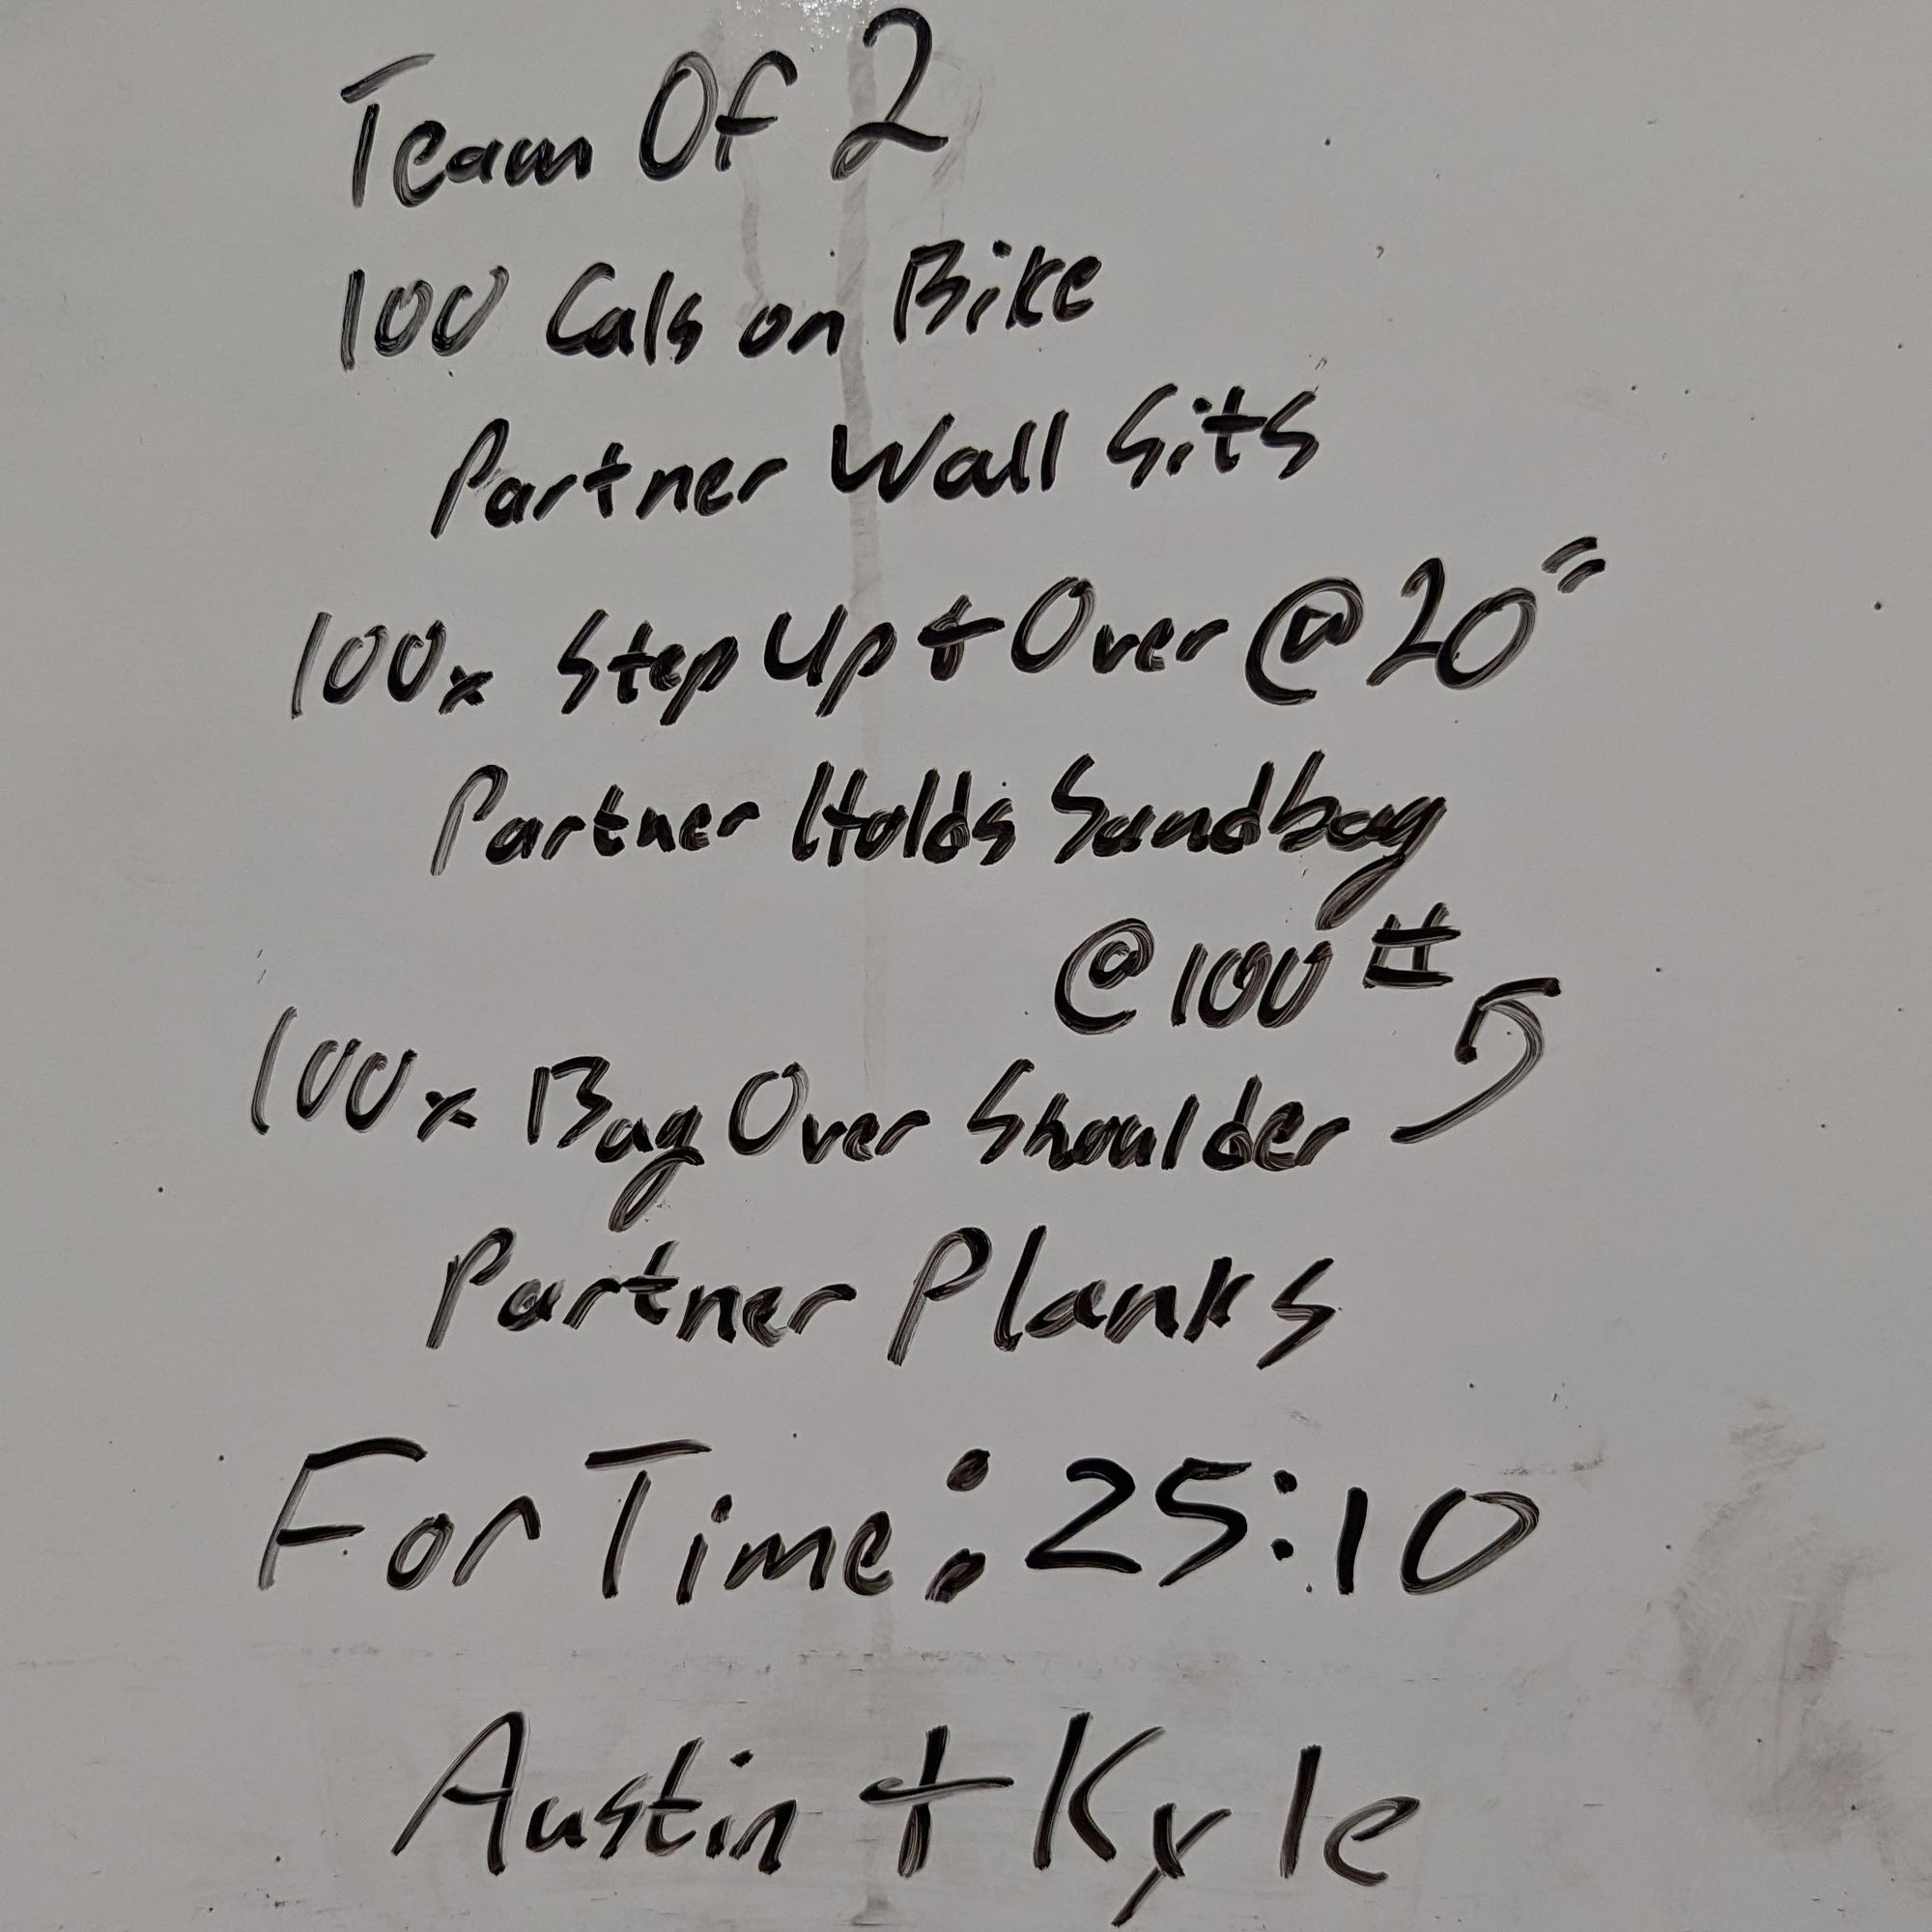 Team Of 2
100 Cals on Bike
Partner Wall Sits
100x Step Up + Over @ 20"
Partner Holds Sandbag
@ 100 #
100x Bag Over Shoulder
Partner Planks
For Time: 25:10
Austin + Kyle